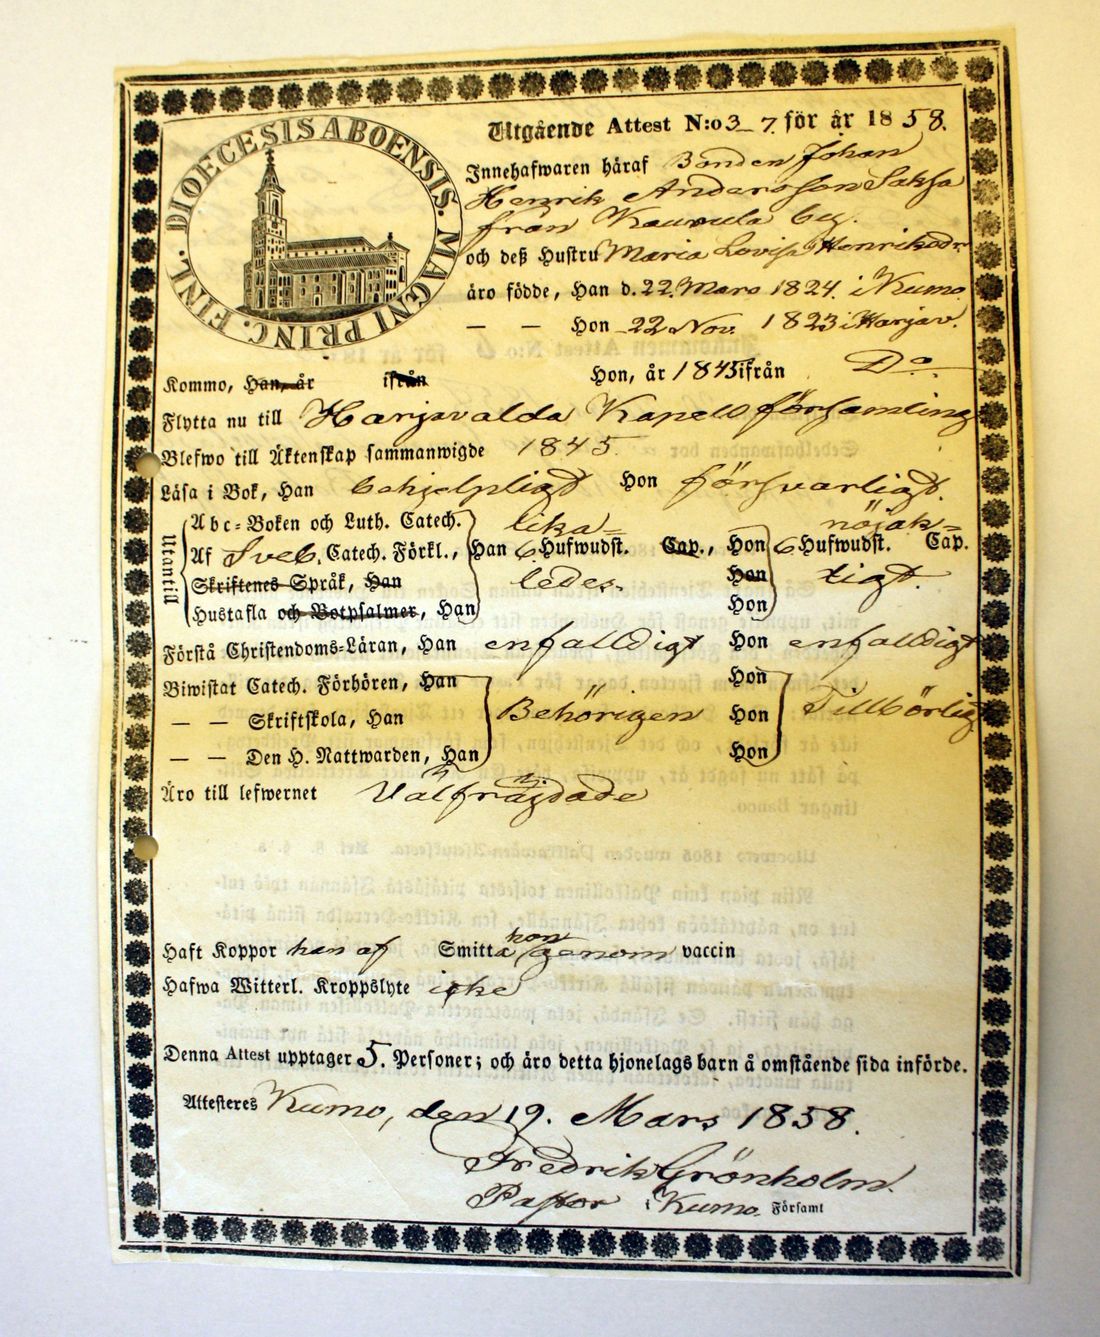 DIOECESIS ABOENSIS. MAGNI PRINC. FINL.
Utgående Attest N:o 3_7. för år 1858.
Innehafwaren häraf Bonden Johan
Henrik Andersson Saksa
från Kauvula by.
och deß Hustru Maria Lovisa Henriksdr.
äro födde, Han d. 22. Mars 1824. i Kumo.
— — Hon 22 Nov. 1823 i Harjav.
Kommo, Han, år ifrån Hon, år 1845 ifrån Do
Flytta nu till Harjavalda Kapells församling
Blefwo till Äktenskap sammanwigde 1845.
Läsa i Bok, Han behjelpligt Hon försvarligt.
Utantill
Abc-Boken och Luth. Catech. lika= nöjak=
Af Sveb. Catech. Förkl., Han 6 Hufwudst. Cap., Hon 6 Hufwudst. Cap.
Skriftenes Språk, Han ledes. Hon tigt.
Hustafla och Botpsalmer, Han Hon
Förstå Christendoms-Läran, Han enfalldigt Hon enfalldigt
Biwistat Catech. Förhören, Han Hon
— — Skriftskola, Han Behörigen Hon Tillbörligt
— — Den H. Nattwarden, Han Hon
Äro till lefwernet Välfrägdade
Haft Koppor han af Smitta hon genom vaccin
Hafwa Witterl. Kroppslyte icke
Denna Attest upptager 5. Personer; och äro detta hjonelags barn å omstående sida införde.
Attesteres Kumo, den 19. Mars 1858.
Fredrik Grönholm.
Pastor i Kumo. Församl